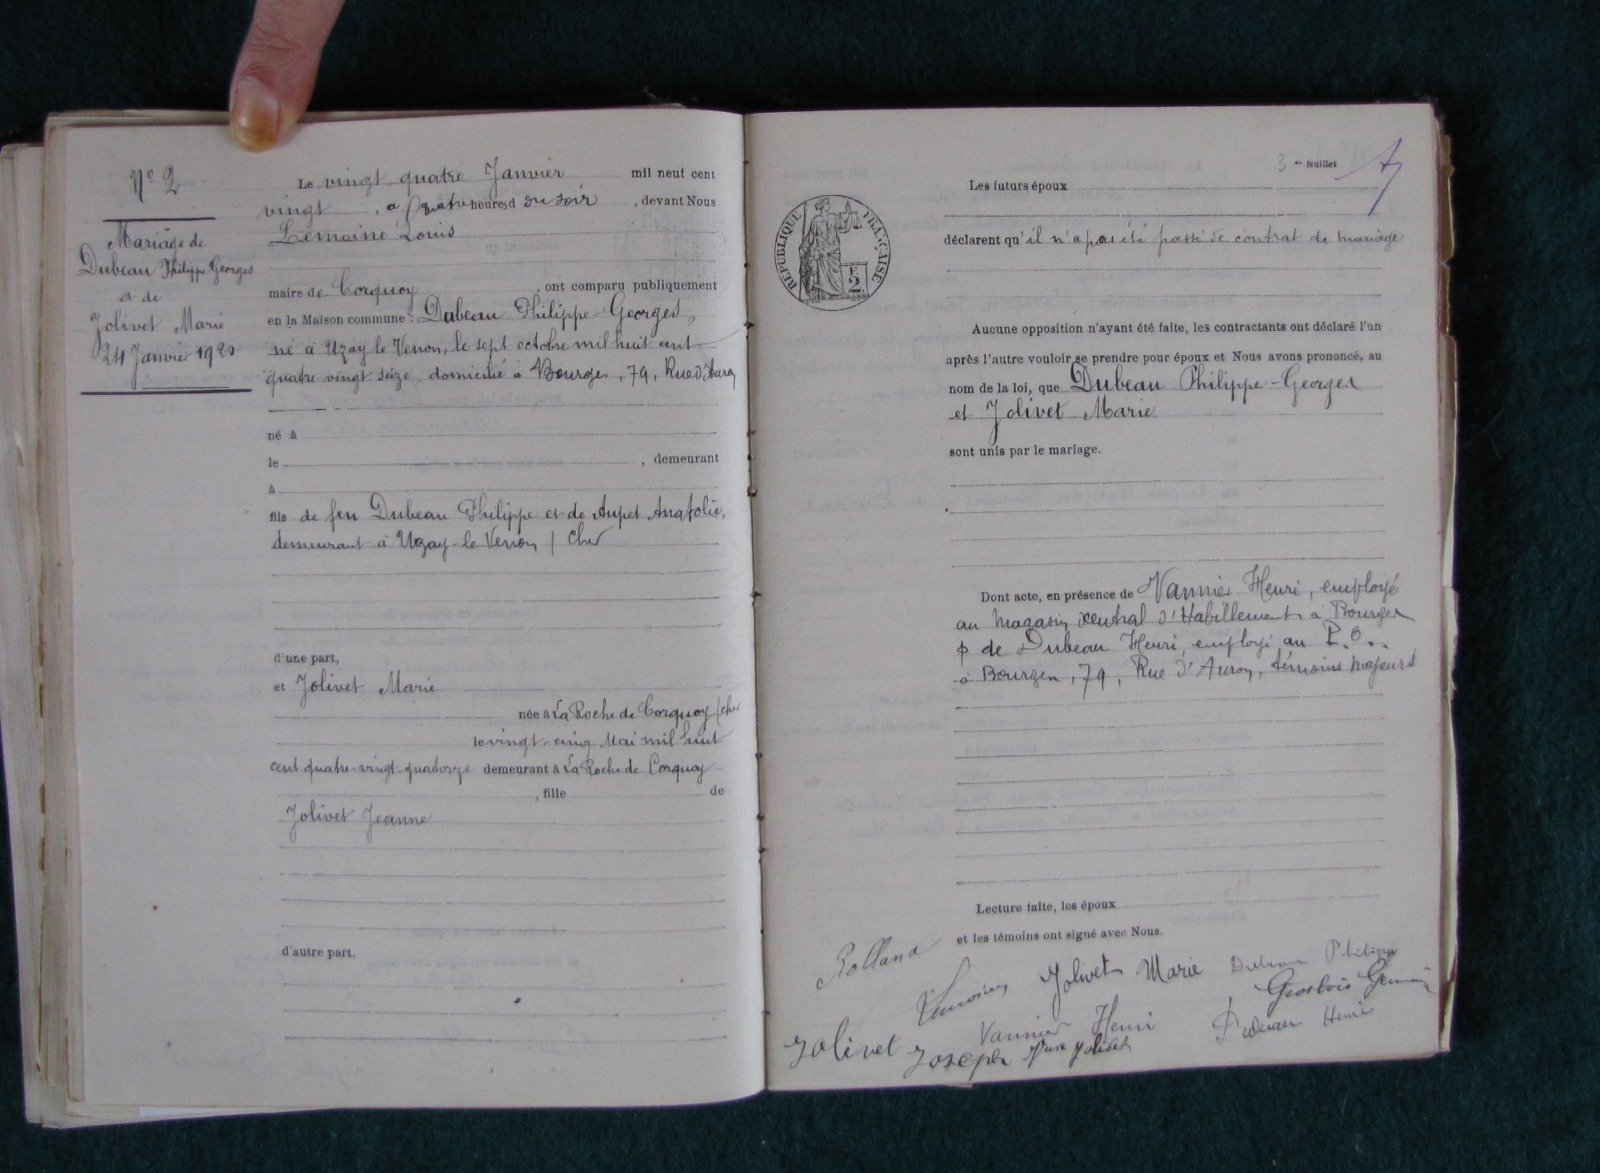 N° 2
Mariage de
Dubeau Philippe Georges
et de
Jolivet Marie
24 Janvier 1920
Le vingt quatre Janvier mil neuf cent
vingt, à quatre heures d du soir, devant Nous
Lemoine Louis
maire de Corquoy, ont comparu publiquement
en la Maison commune : Dubeau Philippe-Georges,
né à Uzay le Venon, le sept octobre mil huit cent
quatre vingt seize, domicilié à Bourges, 79, Rue d'Auron
né à
le , demeurant
à
fils de feu Dubeau Philippe et de Aupet Anatolie,
demeurant à Uzay-le Venon / Cher
d'une part,
et Jolivet Marie
née à La Roche de Corquoy / cher
le vingt-cinq Mai mil huit
cent quatre-vingt-quatorze demeurant à La Roche de Corquoy
, fille de
Jolivet Jeanne
d'autre part.
3 me feuillet
RÉPUBLIQUE FRANÇAISE
F. 2
Les futurs époux
déclarent qu'il n'a pas été passé de contrat de mariage
Aucune opposition n'ayant été faite, les contractants ont déclaré l'un
après l'autre vouloir se prendre pour époux et Nous avons prononcé, au
nom de la loi, que Dubeau Philippe-Georges
et Jolivet Marie
sont unis par le mariage.
Dont acte, en présence de Vannier Henri, employé
au Magasin central d'Habillement à Bourges
& de Dubeau Henri, employé au P. O.
à Bourges, 79, Rue d'Auron, témoins majeurs
Lecture faite, les époux
et les témoins ont signé avec Nous.
Rolland
Lemoine Jolivet Marie Dubeau Philippe
Grosbois Germain
Vannier Henri Dubeau Henri
Jolivet Joseph Jolivet